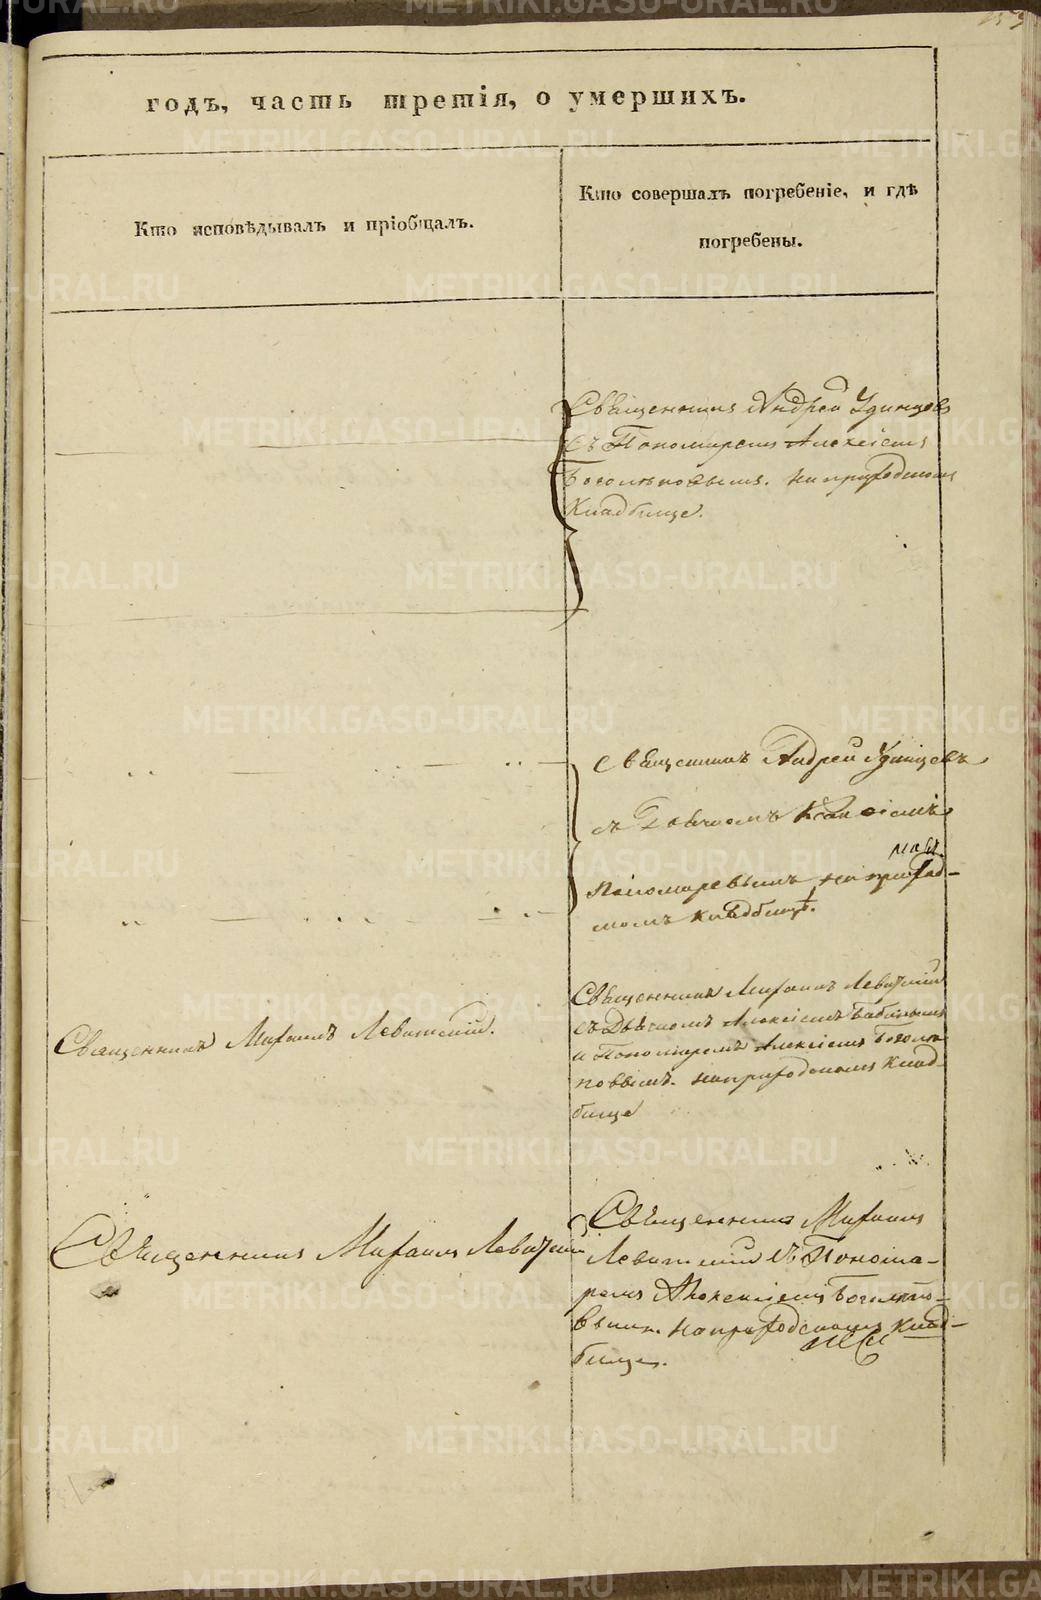 годъ, часть третія, о умершихъ.
Кто исповѣдывалъ и пріобщалъ.
Кто совершалъ погребеніе, и гдѣ
погребены.
Священникъ Андрей Удинцовъ
съ Пономаремъ Алексіемъ
Боголѣповымъ. на приходскомъ
Кладбище.
Священникъ Андрей Удинцевъ
съ Дьячкомъ
Пономаревымъ на приход-
скомъ кладбищѣ.
Священникъ Михаилъ Левитскій.
Священникъ Михаилъ Левитскій
съ Дьячкомъ Алексіемъ Бабиновымъ
и Пономаремъ Алексіемъ Боголѣ
повымъ. на приходскомъ Клад-
бище
Священникъ Михаилъ Левитскій
Священникъ Михаилъ
Левитскій съ Понома-
ремъ Алексіемъ Боголѣпо-
вымъ. на приходскомъ клад-
бище.
METRIKI.GASO-URAL.RU